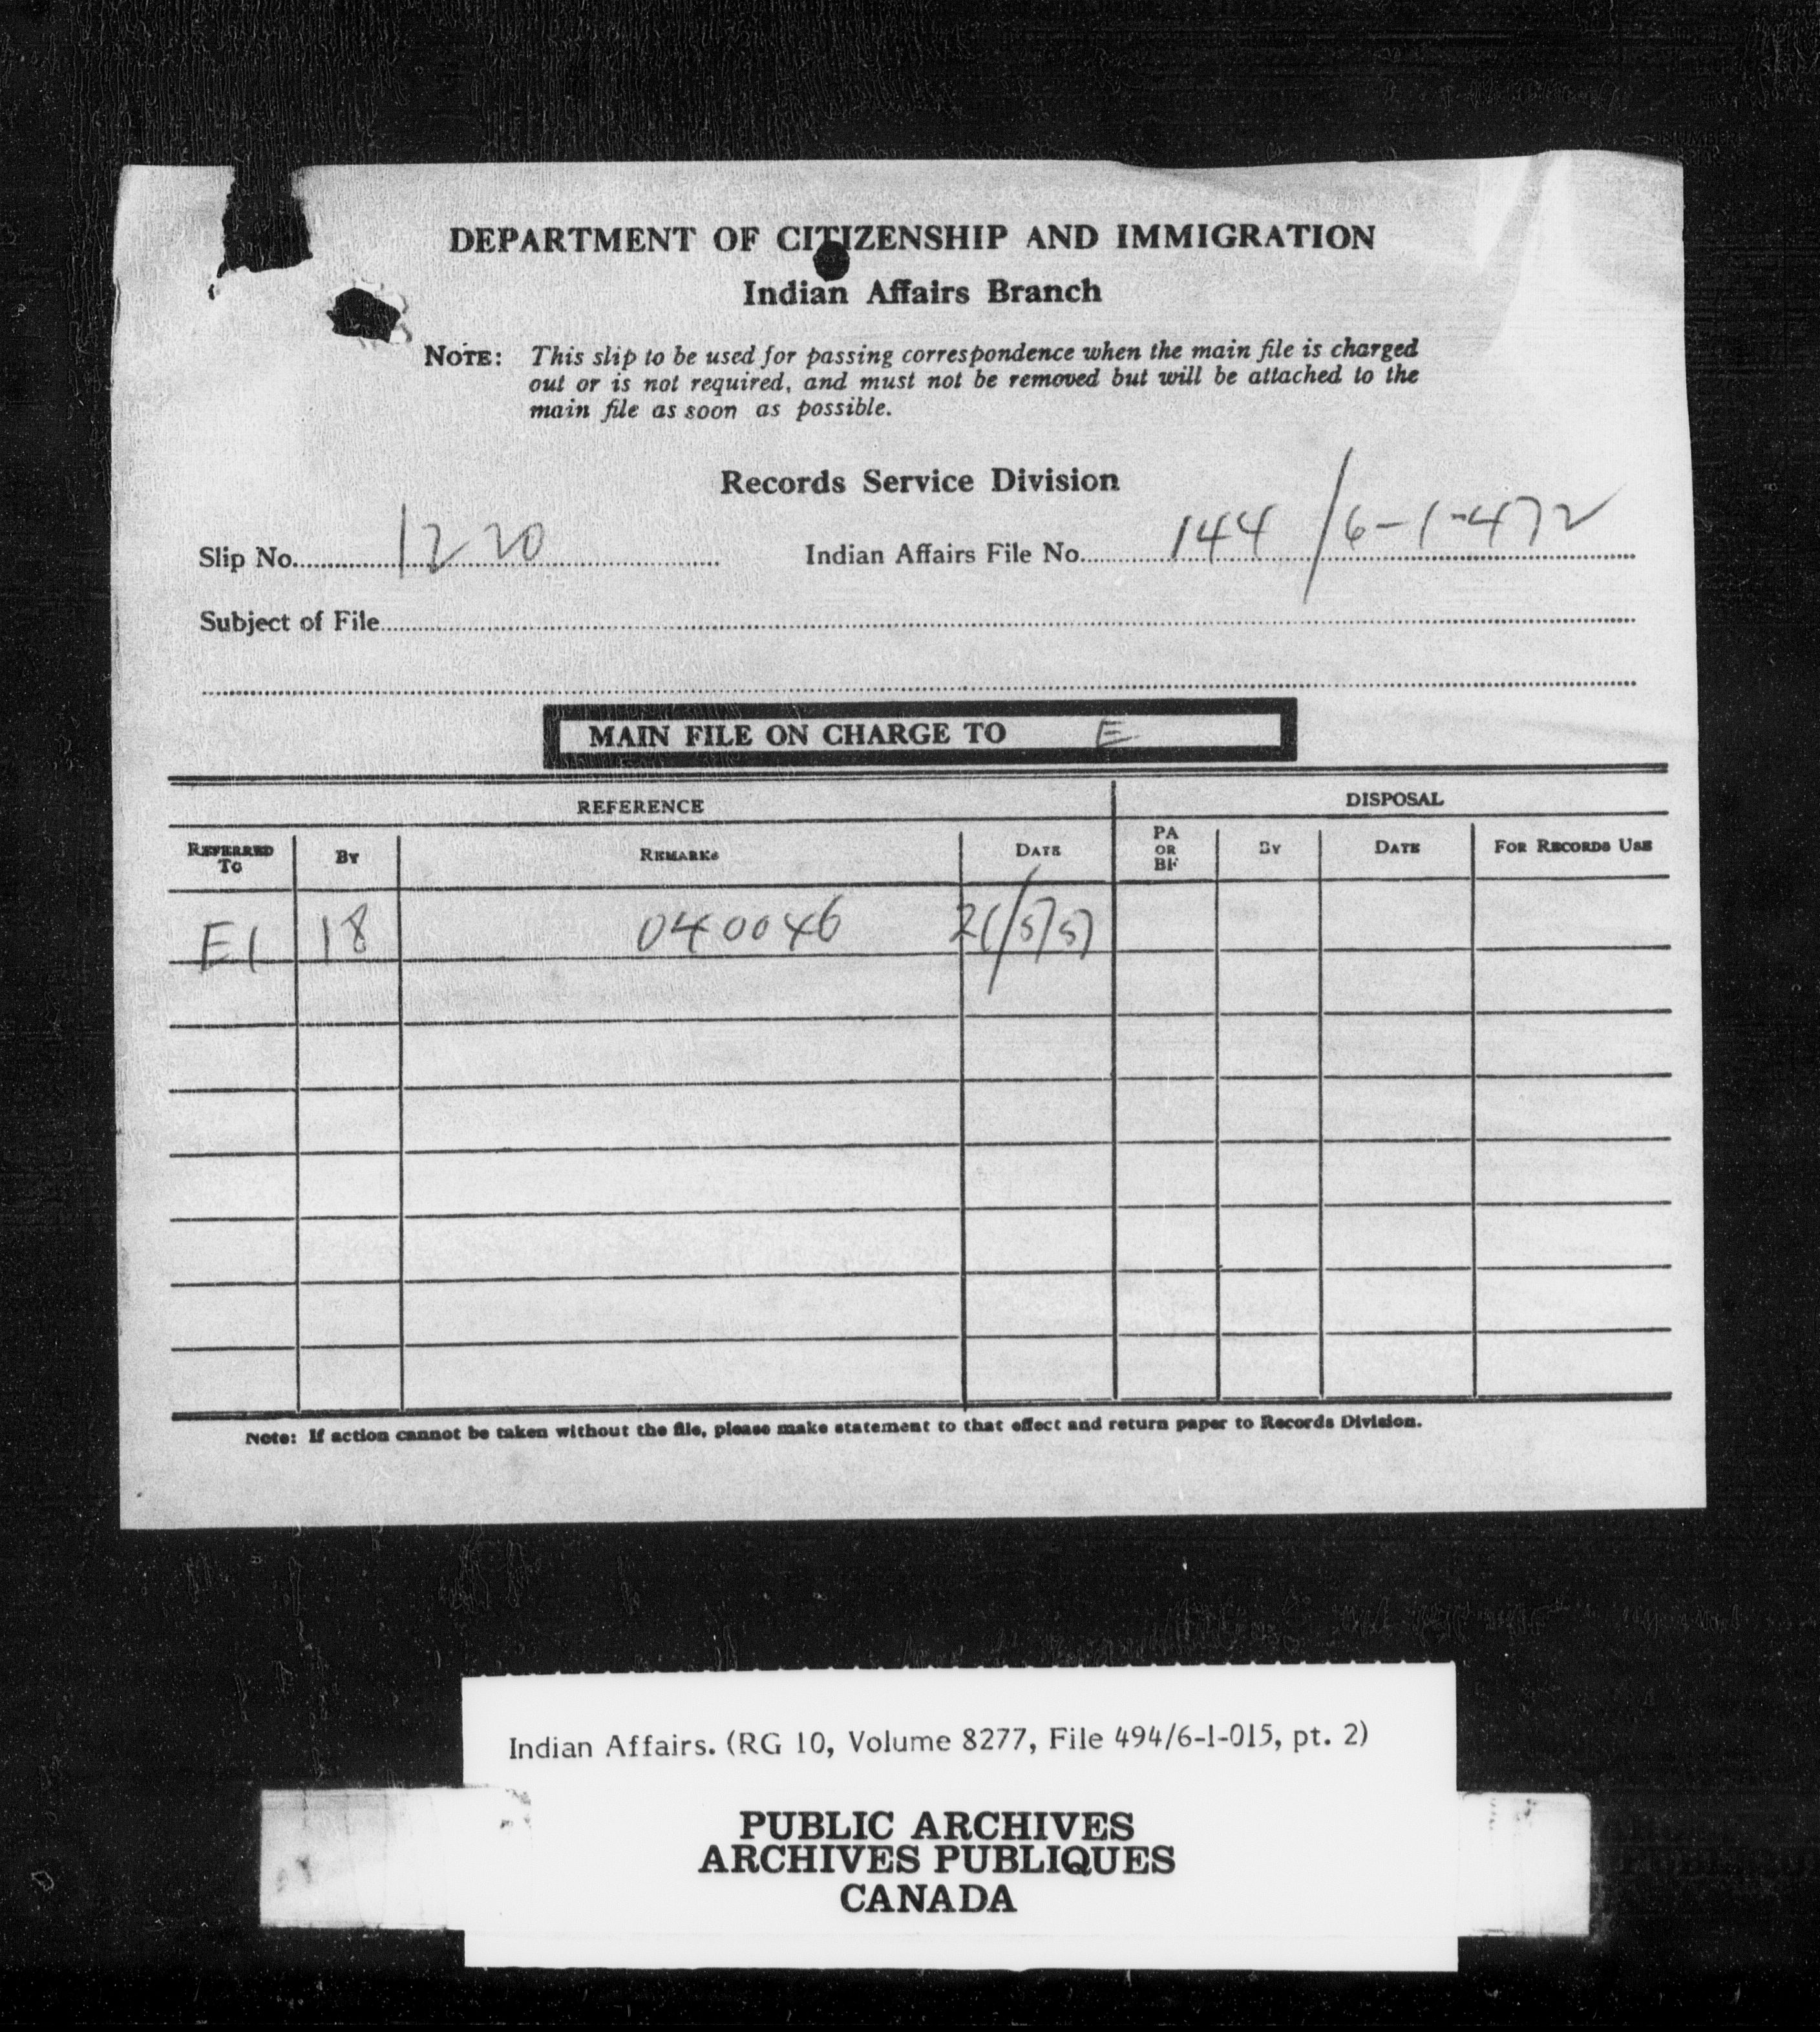 DEPARTMENT OF CITIZENSHIP AND IMMIGRATION
Indian Affairs Branch
NOTE: This slip to be used for passing correspondence when the main file is charged
out or is not required, and must not be removed but will be attached to the
main file as soon as possible.
Records Service Division
Slip No. 1220 Indian Affairs File No. 144/6-1-472
Subject of File
MAIN FILE ON CHARGE TO E
REFERENCE DISPOSAL
REFERRED TO BY REMARKS DATE PA OR BF BY DATE FOR RECORDS USE
E1 18 040046 21/5/57
Note: If action cannot be taken without the file, please make statement to that effect and return paper to Records Division.
Indian Affairs. (RG 10, Volume 8277, File 494/6-1-015, pt. 2)
PUBLIC ARCHIVES
ARCHIVES PUBLIQUES
CANADA